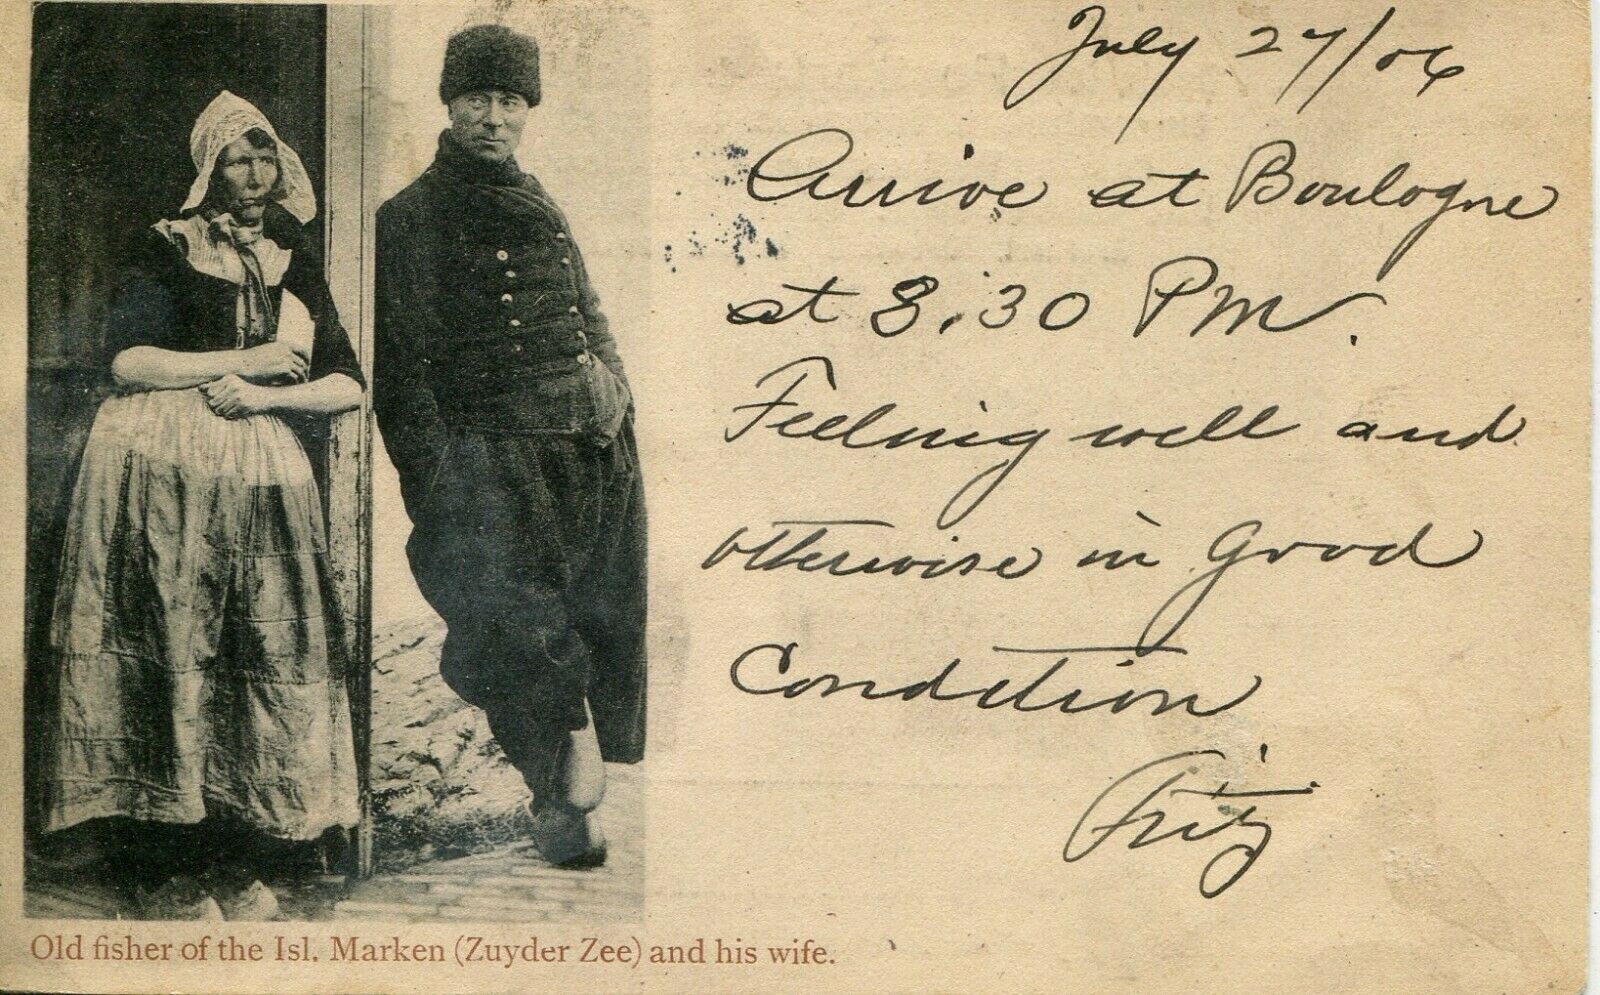 July 27/06
Arrive at Boulogne
at 8.30 PM.
Feeling well and
otherwise in good
Condition
Fritz
Old fisher of the Isl. Marken (Zuyder Zee) and his wife.